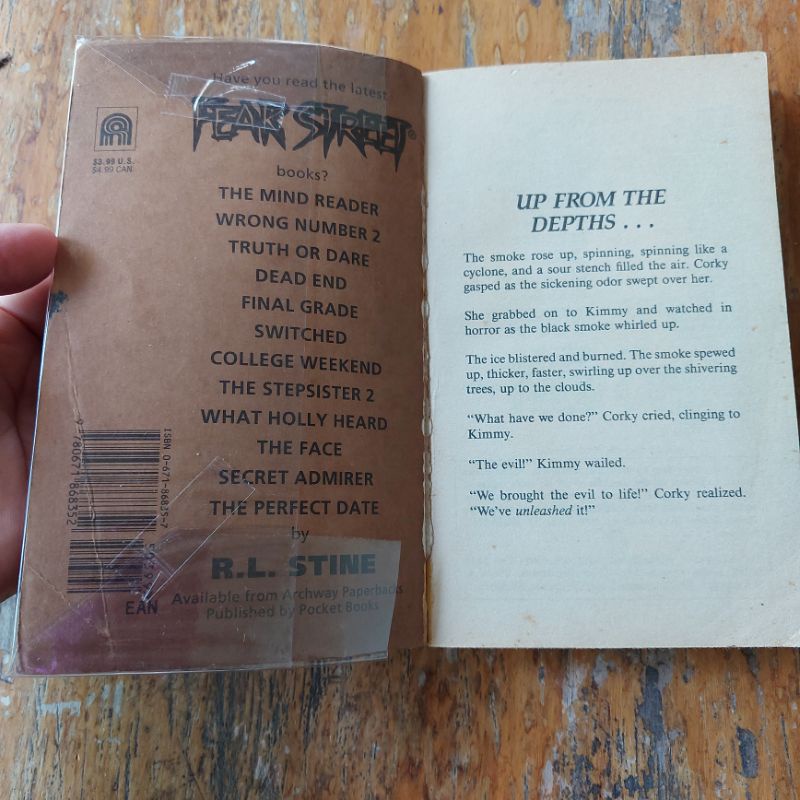 Have you read the latest
FEAR STREET®
books?
THE MIND READER
WRONG NUMBER 2
TRUTH OR DARE
DEAD END
FINAL GRADE
SWITCHED
COLLEGE WEEKEND
THE STEPSISTER 2
WHAT HOLLY HEARD
THE FACE
SECRET ADMIRER
THE PERFECT DATE
by
R.L. STINE
Available from Archway Paperbacks
Published by Pocket Books
$3.99 U.S.
$4.99 CAN
ISBN 0-671-86835-7
9 780671 868352
EAN
UP FROM THE
DEPTHS . . .
The smoke rose up, spinning, spinning like a
cyclone, and a sour stench filled the air. Corky
gasped as the sickening odor swept over her.
She grabbed on to Kimmy and watched in
horror as the black smoke whirled up.
The ice blistered and burned. The smoke spewed
up, thicker, faster, swirling up over the shivering
trees, up to the clouds.
“What have we done?” Corky cried, clinging to
Kimmy.
“The evil!” Kimmy wailed.
“We brought the evil to life!” Corky realized.
“We’ve unleashed it!”